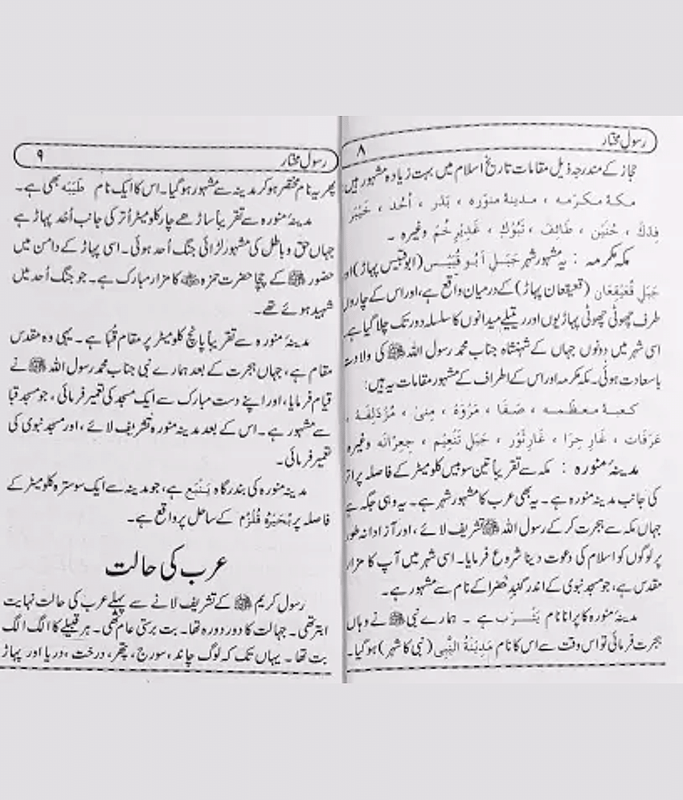 رسول مختار
۸
حجاز کے مندرجہ ذیل مقامات تاریخ اسلام میں بہت زیادہ مشہور ہیں
مکۂ مکرمہ ، مدینۂ منورہ ، بَدْر ، اُحُد ، خَیْبَر
فِدَک ، حُنَیْن ، طائف ، تَبُوْک ، غَدِیْرِ خُم وغیرہ ۔
مکۂ مکرمہ : یہ مشہور شہر جَبَلِ اَبُو قُبَیْس (ابوقبیس پہاڑ) اور
جَبَلِ قُعَیْقِعَان (قعیقعان پہاڑ) کے درمیان واقع ہے، اور اس کے چاروں
طرف چھوٹی چھوٹی پہاڑیوں اور ریتیلے میدانوں کا سلسلہ دور تک چلا گیا ہے۔
اسی شہر میں دونوں جہاں کے شہنشاہ جناب محمد رسول اللہ ﷺ کی ولادت
باسعادت ہوئی۔ مکۂ مکرمہ اور اس کے اطراف کے مشہور مقامات یہ ہیں:
کعبۂ معظمہ ، صَفَا ، مَرْوَہ ، مِنیٰ ، مُزْدَلِفَہ ،
عَرَفَات ، غارِ حِرَا ، غارِ ثَوْر ، جَبَلِ تَنْعِیْم ، جِعِرَّانَہ وغیرہ
مدینۂ منورہ : مکہ سے تقریباً تین سو بیس کلومیٹر کے فاصلہ پر اتر
کی جانب مدینہ منورہ ہے۔ یہ بھی عرب کا مشہور شہر ہے۔ یہ وہی جگہ ہے
جہاں مکہ سے ہجرت کر کے رسول اللہ ﷺ تشریف لائے، اور آزادانہ طور
پر لوگوں کو اسلام کی دعوت دینا شروع فرمایا۔ اسی شہر میں آپ کا مزار
مقدس ہے، جو مسجد نبوی کے اندر گنبد خضرا کے نام سے مشہور ہے۔
مدینۂ منورہ کا پرانا نام یَثْرَب ہے ۔ ہمارے نبی ﷺ نے وہاں
ہجرت فرمائی تو اس وقت سے اس کا نام مَدِیْنَۃُ النَّبِی (نبی کا شہر) ہو گیا۔
رسول مختار
۹
پھر یہ نام مختصر ہو کر مدینہ سے مشہور ہو گیا۔ اس کا ایک نام طَیْبَہ بھی ہے۔
مدینۂ منورہ سے تقریباً ساڑھے چار کلومیٹر اُتر کی جانب اُحُد پہاڑ ہے
جہاں حق و باطل کی مشہور لڑائی جنگ اُحد ہوئی۔ اسی پہاڑ کے دامن میں
حضور ﷺ کے چچا حضرت حمزہ کا مزار مبارک ہے۔ جو جنگ اُحد میں
شہید ہوئے تھے۔
مدینۂ منورہ سے تقریباً پانچ کلومیٹر پر مقام قُبا ہے۔ یہی وہ مقدس
مقام ہے، جہاں ہجرت کے بعد ہمارے نبی جناب محمد رسول اللہ ﷺ نے
قیام فرمایا، اور اپنے دست مبارک سے ایک مسجد کی تعمیر فرمائی، جو مسجد قبا
سے مشہور ہے۔ اس کے بعد مدینہ منورہ تشریف لائے، اور مسجد نبوی کی
تعمیر فرمائی۔
مدینۂ منورہ کی بندرگاہ یَنْبُع ہے، جو مدینہ سے ایک سو سترہ کلومیٹر کے
فاصلہ پر بُحَیْرَہ قُلْزُم کے ساحل پر واقع ہے۔
عرب کی حالت
رسول کریم ﷺ کے تشریف لانے سے پہلے عرب کی حالت نہایت
ابتر تھی۔ جہالت کا دور دورہ تھا۔ بت پرستی عام تھی۔ ہر قبیلے کا الگ الگ
بت تھا ۔ یہاں تک کہ لوگ چاند، سورج، پتھر، درخت، دریا اور پہاڑ